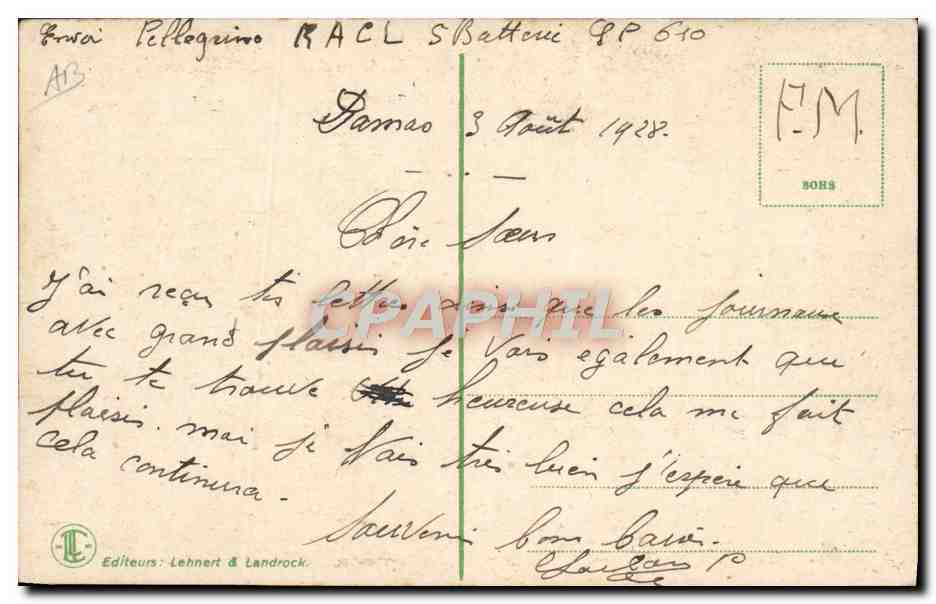 Envoi Pellegrino RACL 5 Batterie SP 610
AB
F.M.
BOHS
Damas 3 Août 1928.
Chère Sœur
J'ai reçu tes lettres ainsi que les journaux
avec grand plaisir je vois également que
tu te trouve heureuse cela me fait
plaisir. moi je vais très bien j'espère que
cela continuera.
Souvenir bons baisers.
P
CPAPHIL
Editeurs: Lehnert & Landrock.